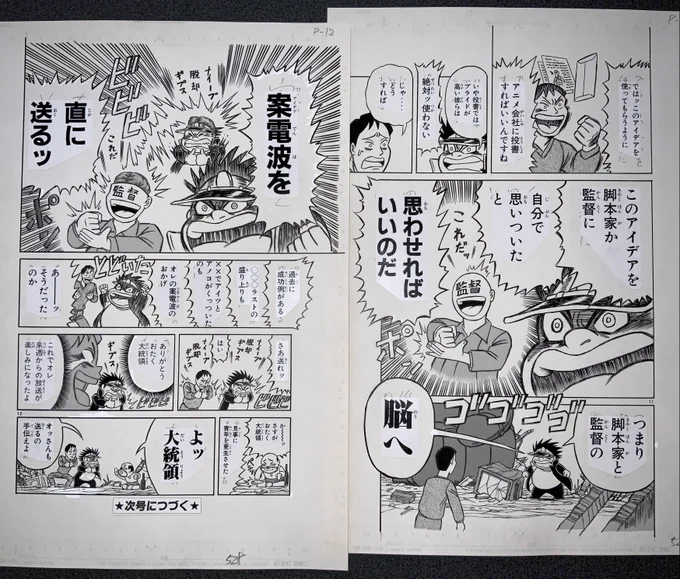 ではッこのアイデアを
使ってもらうように
アニメ会社に投書
すればいいんですね
いや投書では
プライドが
高い彼らは
絶対ッ
使わない
じゃ‥‥
どう
すれば
このアイデアを
脚本家か
監督に
自分で
思いついた
と
思わせれば
いいのだ
これだッ
監督
ポ
つまり
脚本家と
監督の
脳へ
ゴゴゴゴ
11
P-12
案電波を
直に
送るッ
脱却
ギブス
ビビビ
これだ
監督
ポ
過去に
成功例がある
○○○ラストの
盛り上りも
××でアイツと
アノコがくっついた
のも
オレの案電波の
おかげ
あーーッ
そうだった
のか
さあ送れッ
はい
脱却
ギブス
ありがとう
おたく
大統領
これでオレ
来週からの放送が
楽しみになったよ
さすが
おたく
大統領
見事に
青年を更生させた
よッ
大統領
オッさんも
送るの
手伝えよ
12
★次号につづく★
528